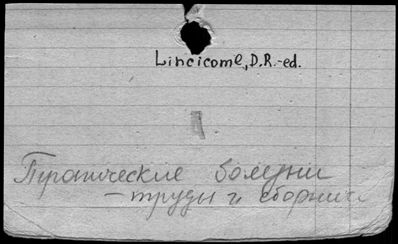 Lincicome, D.R.-ed.
Тропические болезни
- труды и сборники